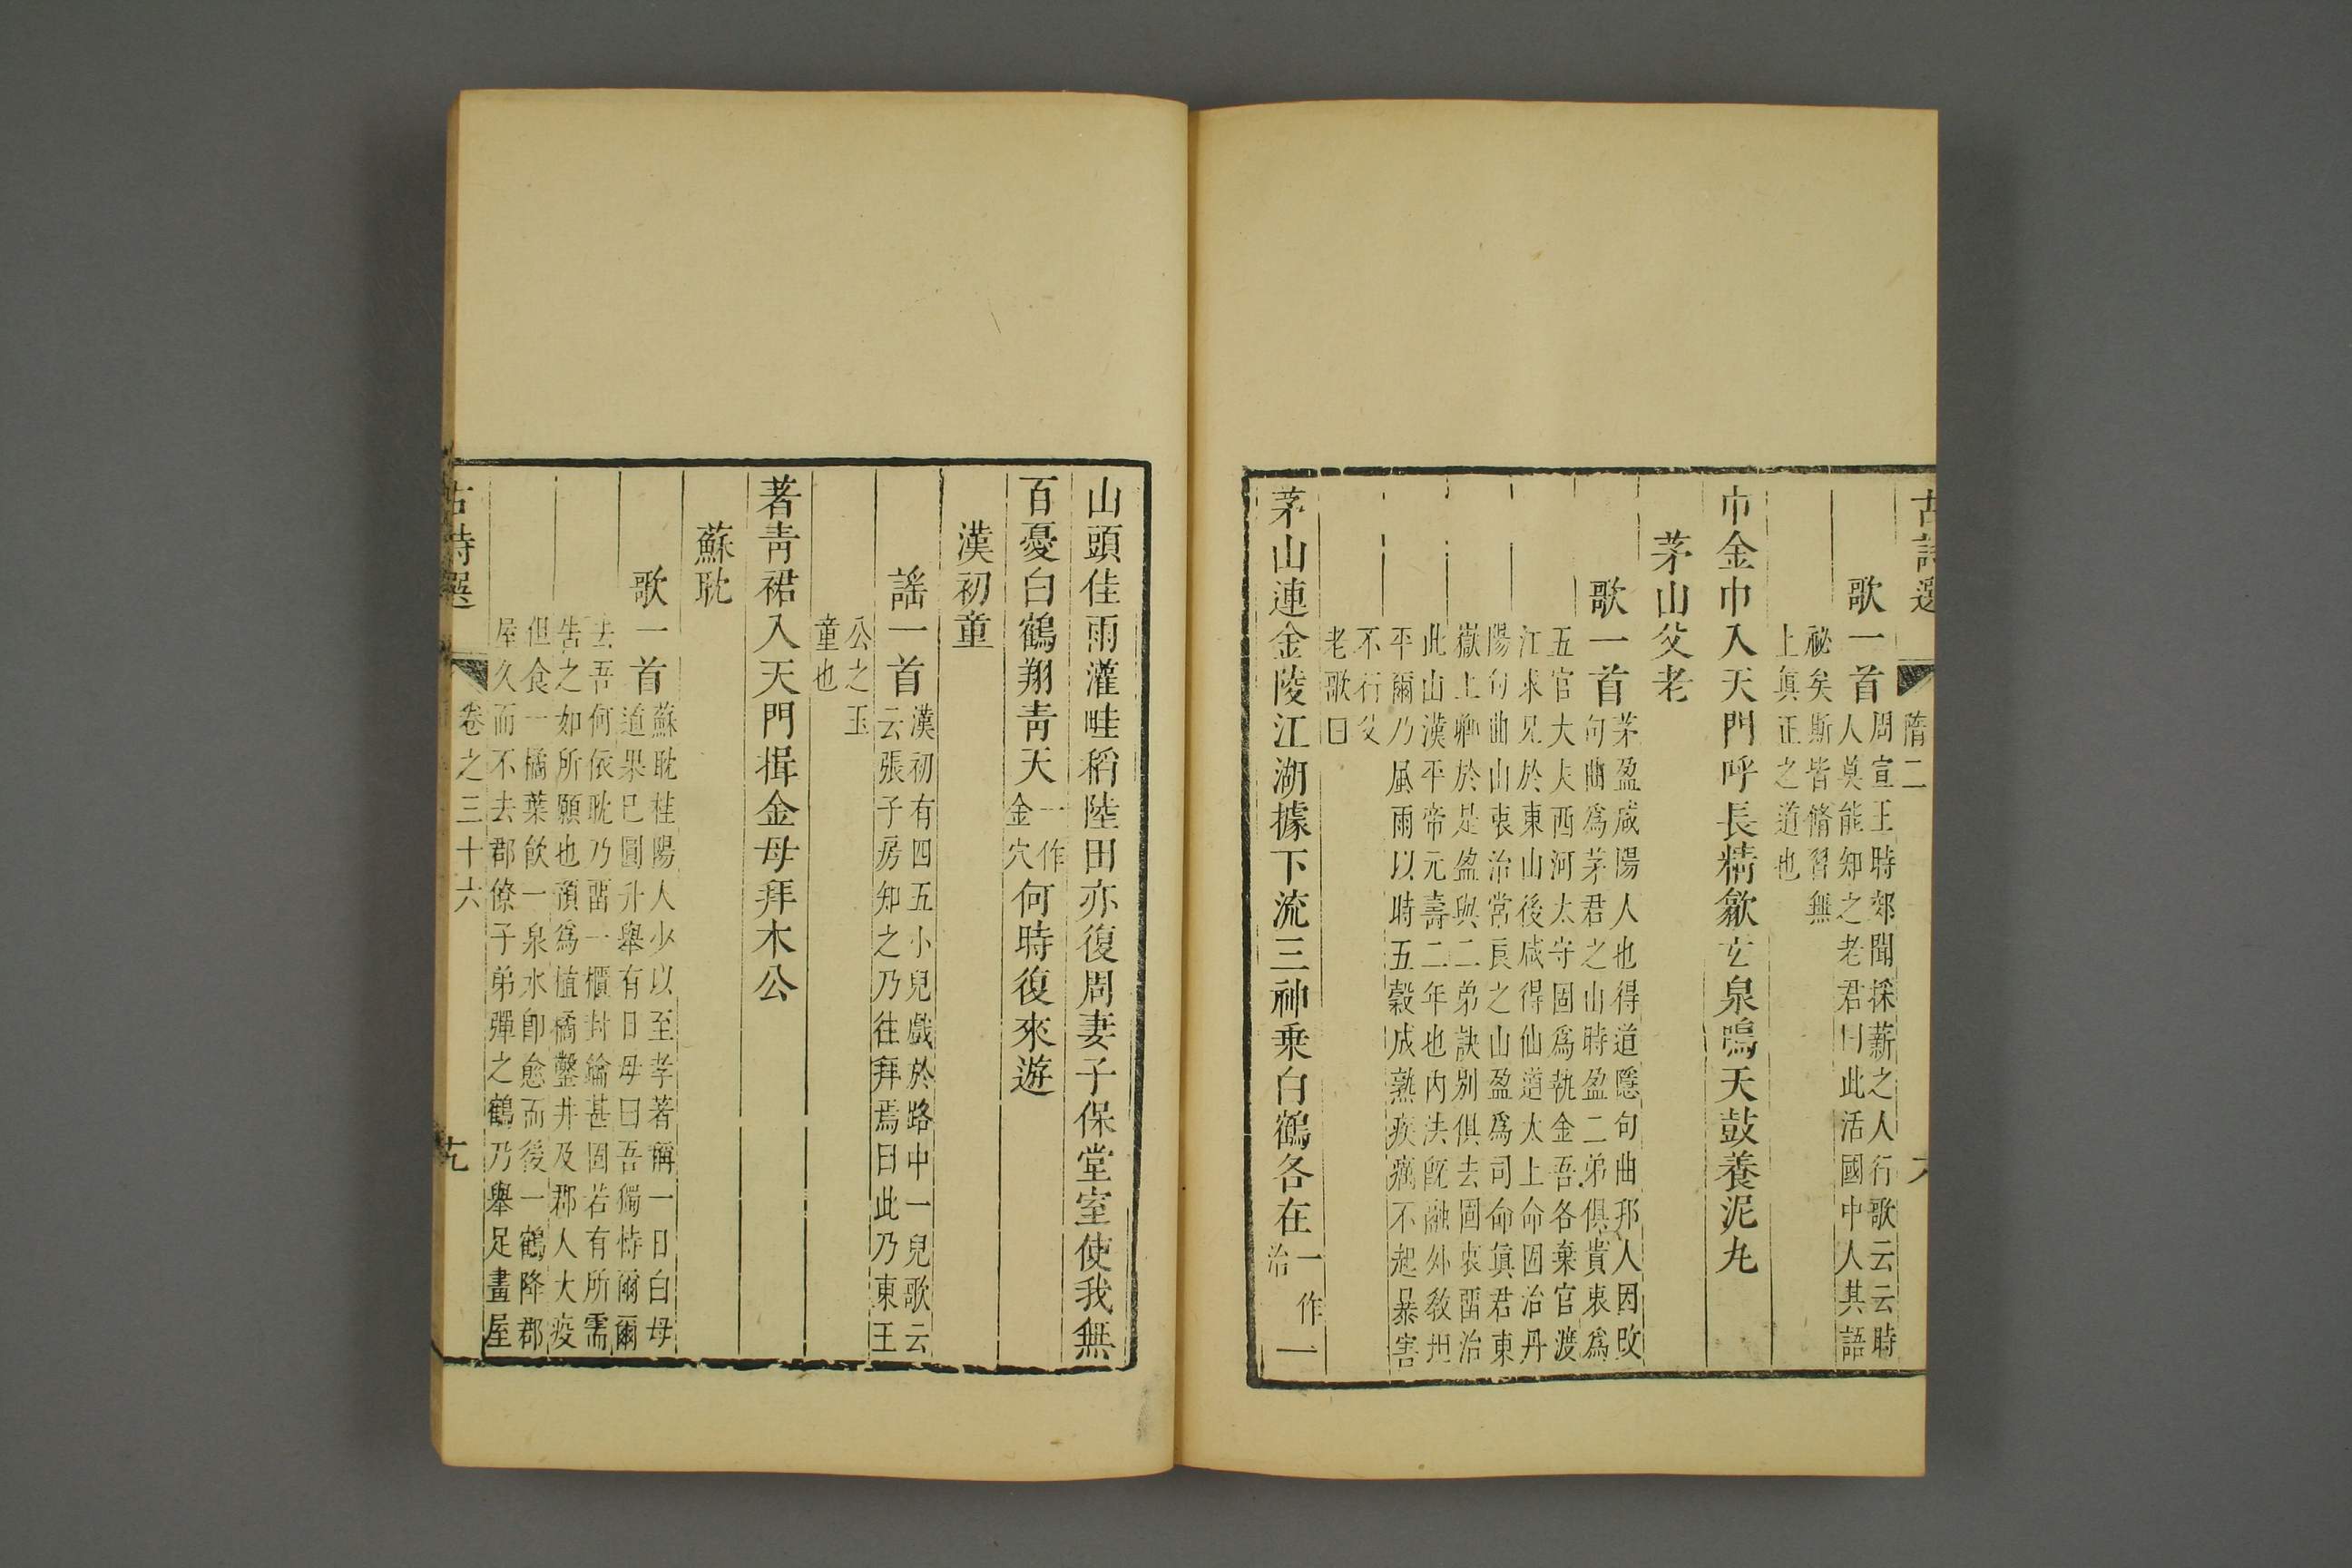 隋二
歌一首
周宣王時郊聞採薪之人行歌云云時
人莫能知之老君曰此活國中人其語
祕矣斯皆脩習無
上眞正之道也
巾金巾入天門呼長精歙玄泉鳴天鼓養泥丸
茅山父老
歌一首
茅盈咸陽人也得道隱句曲邦人因改
句曲爲茅君之山時盈二弟俱貴衷爲
五官大夫西河太守固爲執金吾各棄官渡
江求兄於東山後咸得仙道太上命固治丹
陽句曲山衷治常良之山盈爲司命眞君東
嶽上卿於是盈與二弟訣別俱去固衷留治
此山漢平帝元壽二年也内法旣融外教坦
平爾乃風雨以時五穀成熟疾癘不起暴害
不行父
老歌曰
茅山連金陵江湖據下流三神乗白鶴各在一作治一
山頭佳雨灌畦稻陸田亦復周妻子保堂室使我無
百憂白鶴翔青天一作金穴何時復來遊
漢初童
謡一首
漢初有四五小兒戲於路中一兒歌云
云張子房知之乃往拜焉曰此乃東王
公之玉
童也
著青裙入天門揖金母拜木公
蘇耽
歌一首
蘇耽桂陽人少以至孝著稱一日白母
道果已圓升舉有日母曰吾獨恃爾爾
去吾何依耽乃留一櫃封鑰甚固若有所需
告之如所願也預爲植橘鑿井及郡人大疫
但食一橘葉飲一泉水卽愈而後一鶴降郡
屋久而不去郡僚子弟彈之鶴乃舉足畫屋
古詩選
卷之三十六